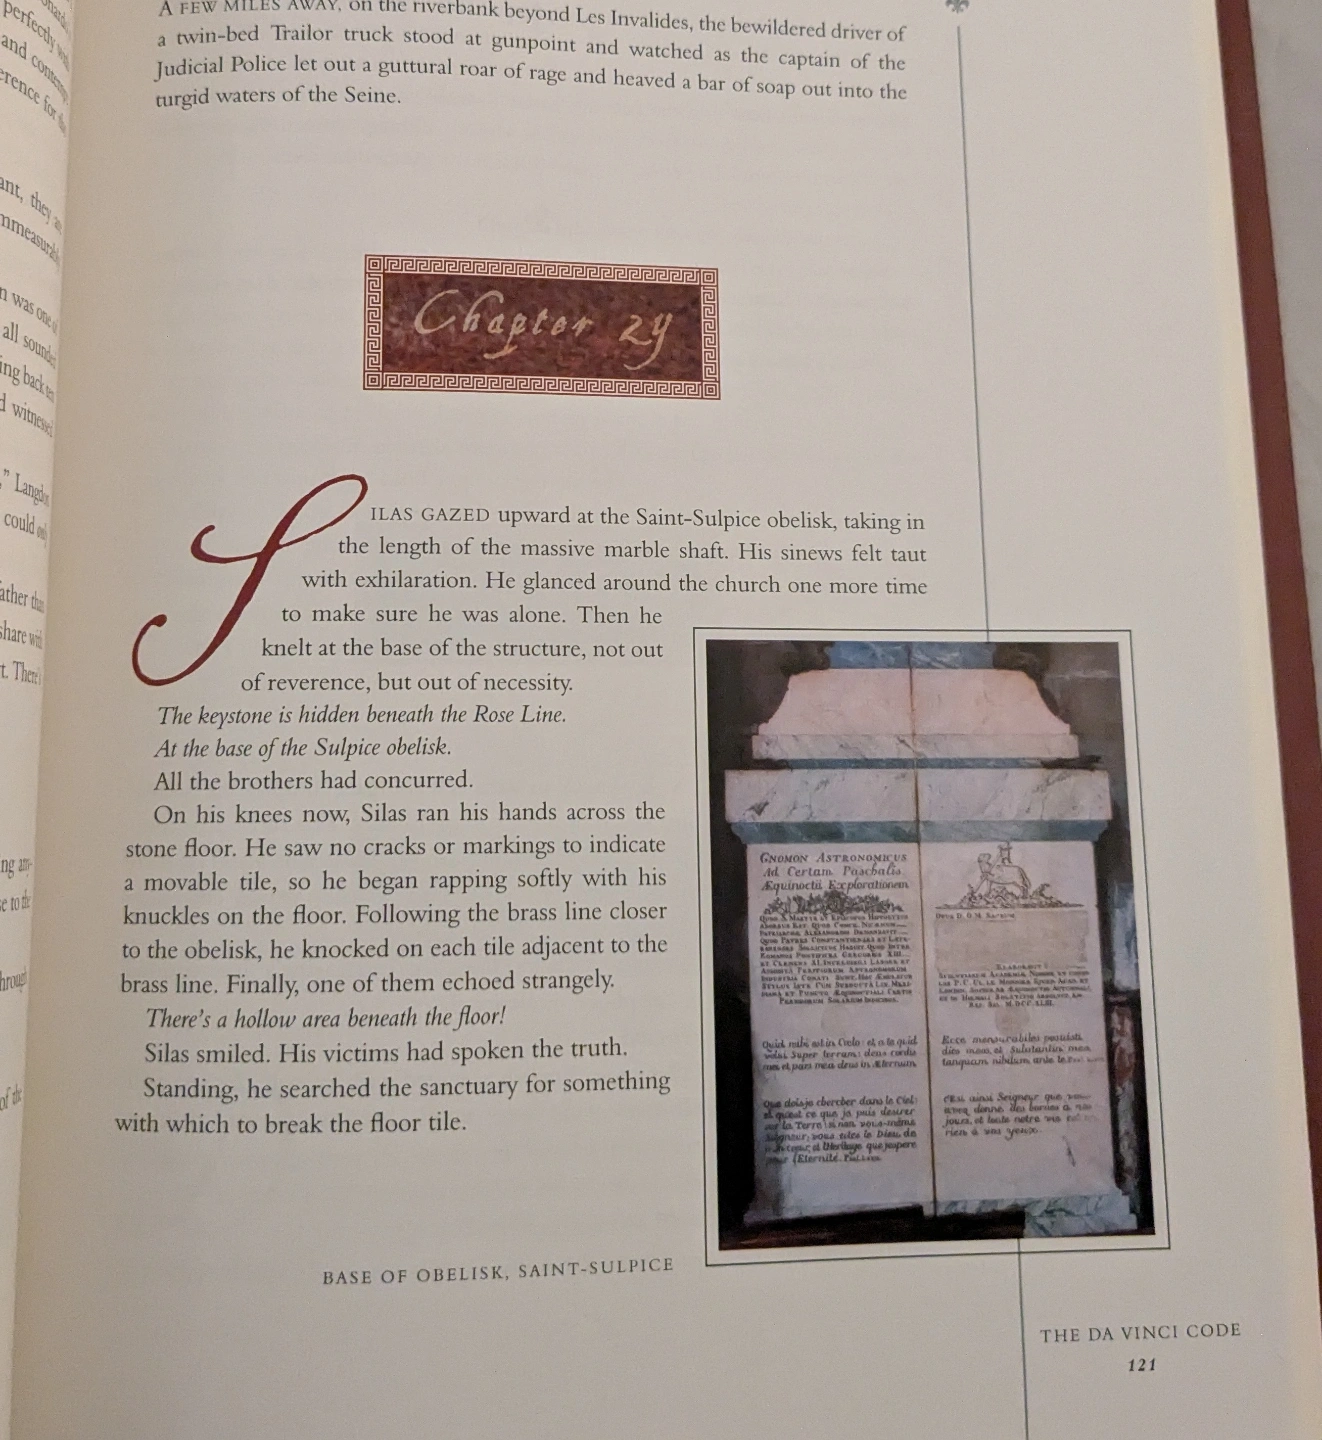 perfectly
and
A FEW MILES AWAY, on the riverbank beyond Les Invalides, the bewildered driver of
a twin-bed Trailor truck stood at gunpoint and watched as the captain of the
Judicial Police let out a guttural roar of rage and heaved a bar of soap out into the
turgid waters of the Seine.
ant, they
n was one
all
ing back
" Langdon
could
share
t.
Chapter 24
SILAS GAZED upward at the Saint-Sulpice obelisk, taking in
the length of the massive marble shaft. His sinews felt taut
with exhilaration. He glanced around the church one more time
to make sure he was alone. Then he
knelt at the base of the structure, not out
of reverence, but out of necessity.
The keystone is hidden beneath the Rose Line.
At the base of the Sulpice obelisk.
All the brothers had concurred.
On his knees now, Silas ran his hands across the
stone floor. He saw no cracks or markings to indicate
a movable tile, so he began rapping softly with his
knuckles on the floor. Following the brass line closer
to the obelisk, he knocked on each tile adjacent to the
brass line. Finally, one of them echoed strangely.
There's a hollow area beneath the floor!
Silas smiled. His victims had spoken the truth.
Standing, he searched the sanctuary for something
with which to break the floor tile.
GNOMON ASTRONOMICUS
Ad Certam Paschalis
Æquinoctii Explorationem
Quid mihi est in Cœlo: et a te quid
volui super terram: deus cordis
mei et pars mea deus in Æternum
Que dois-je chercher dans le Ciel:
et qu'est ce que je puis desirer
sur la Terre si non vous-même
Seigneur, vous etes le Dieu de
mon cœur, et l'Heritage que j'espere
pour l'Eternité.
Ecce mensurabiles posuisti
dies meos et substantia mea
tanquam nihilum ante te
C'est ainsi Seigneur que vous
avez donné des bornes a nos
jours, et toute notre vie est
rien à vos yeux.
BASE OF OBELISK, SAINT-SULPICE
THE DA VINCI CODE
121